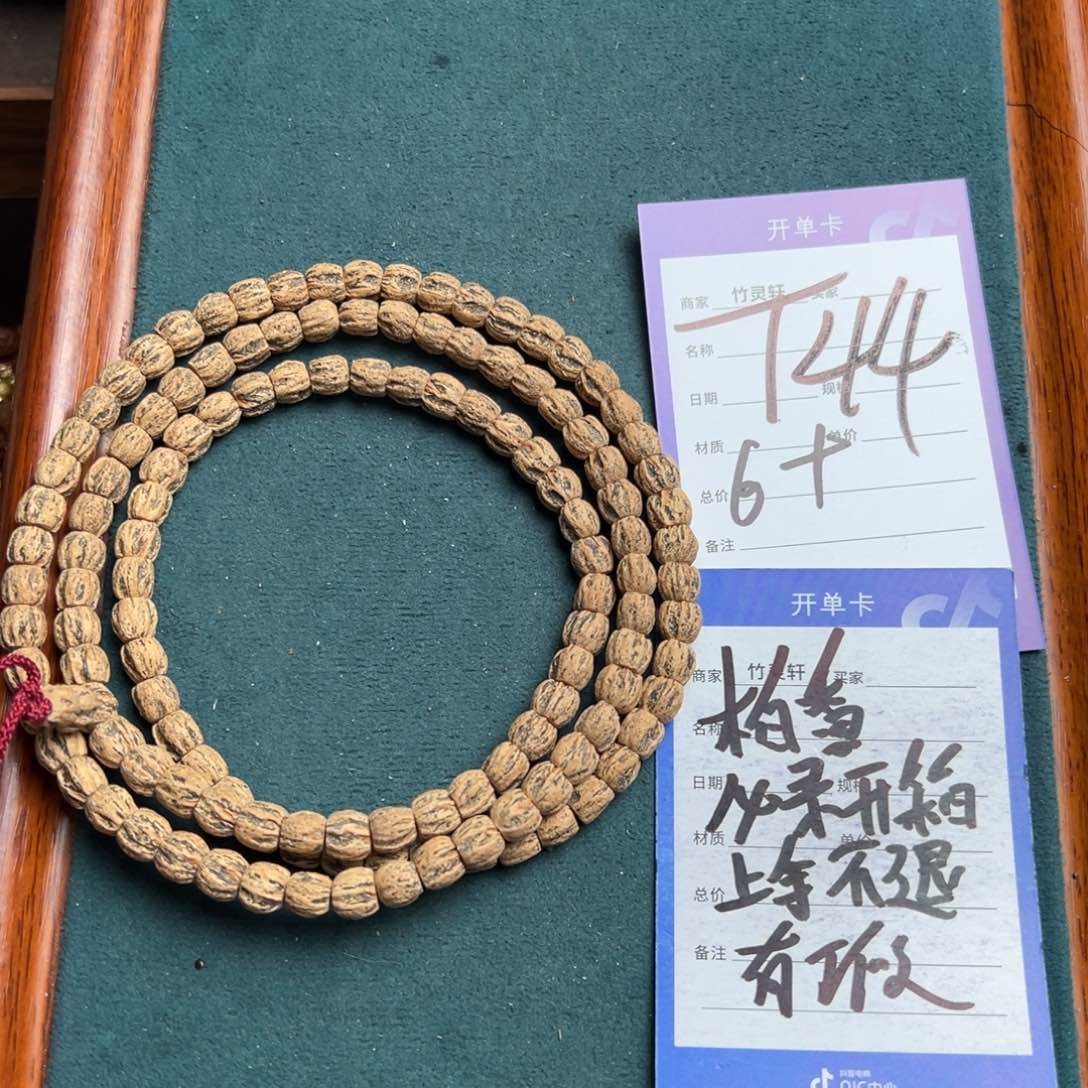 开单卡
商家 竹灵轩 买家
T44
名称
日期 规格
材质 单价
6+
总价
备注
开单卡
商家 竹灵轩 买家
名称
必录开箱
日期 规格
材质 单价
上手不退
总价
备注 有修
抖音电商
QIC中心